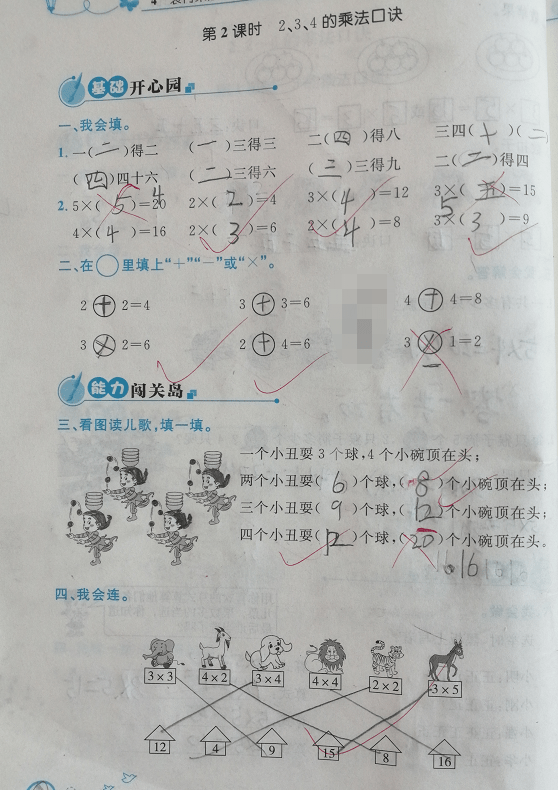 第2课时 2、3、4的乘法口诀
基础 开心园
一、我会填。
1. 一(二)得二 (一)三得三 二(四)得八 三四(十)(二
(四)四十六 (二)三得六 (三)三得九 二(二)得四
2. 5×(5)=20 4 2×(2)=4 3×(4)=12 3×(五)=15 5
4×(4)=16 2×(3)=6 2×(4)=8 3×(3)=9
二、在○里填上“+”“-”或“×”。
2+2=4 3+3=6 4+4=8
3×2=6 2+4=6 3×1=2 -
能力 闯关岛
三、看图读儿歌,填一填。
一个小丑耍3个球,4个小碗顶在头;
两个小丑耍(6)个球,(8)个小碗顶在头;
三个小丑耍(9)个球,(12)个小碗顶在头;
四个小丑耍(12)个球,(20)个小碗顶在头。
16 16 16
四、我会连。
3×3 4×2 3×4 4×4 2×2 3×5
12 4 9 15 8 16